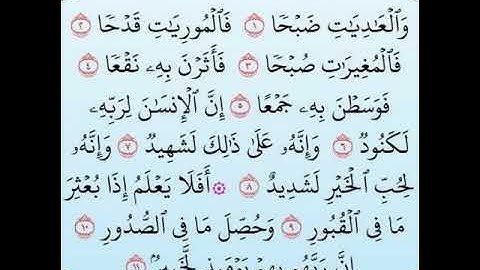 وَٱلْعَٰدِيَٰتِ ضَبْحًا ١ فَٱلْمُورِيَٰتِ قَدْحًا ٢
فَٱلْمُغِيرَٰتِ صُبْحًا ٣ فَأَثَرْنَ بِهِۦ نَقْعًا ٤
فَوَسَطْنَ بِهِۦ جَمْعًا ٥ إِنَّ ٱلْإِنسَٰنَ لِرَبِّهِۦ
لَكَنُودٌ ٦ وَإِنَّهُۥ عَلَىٰ ذَٰلِكَ لَشَهِيدٌ ٧ وَإِنَّهُۥ
لِحُبِّ ٱلْخَيْرِ لَشَدِيدٌ ٨ ۞ أَفَلَا يَعْلَمُ إِذَا بُعْثِرَ
مَا فِى ٱلْقُبُورِ ٩ وَحُصِّلَ مَا فِى ٱلصُّدُورِ ١٠
إِنَّ رَبَّهُم بِهِمْ يَوْمَئِذٍ لَّخَبِيرٌۢ ١١